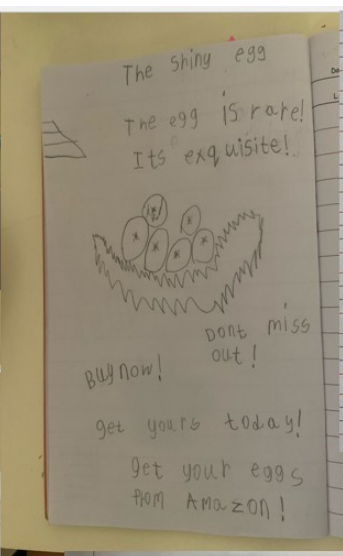 The Shiny egg
The egg is rare!
Its exquisite!
Dont miss
out!
Buy now!
get yours today!
get your eggs
from Amazon!